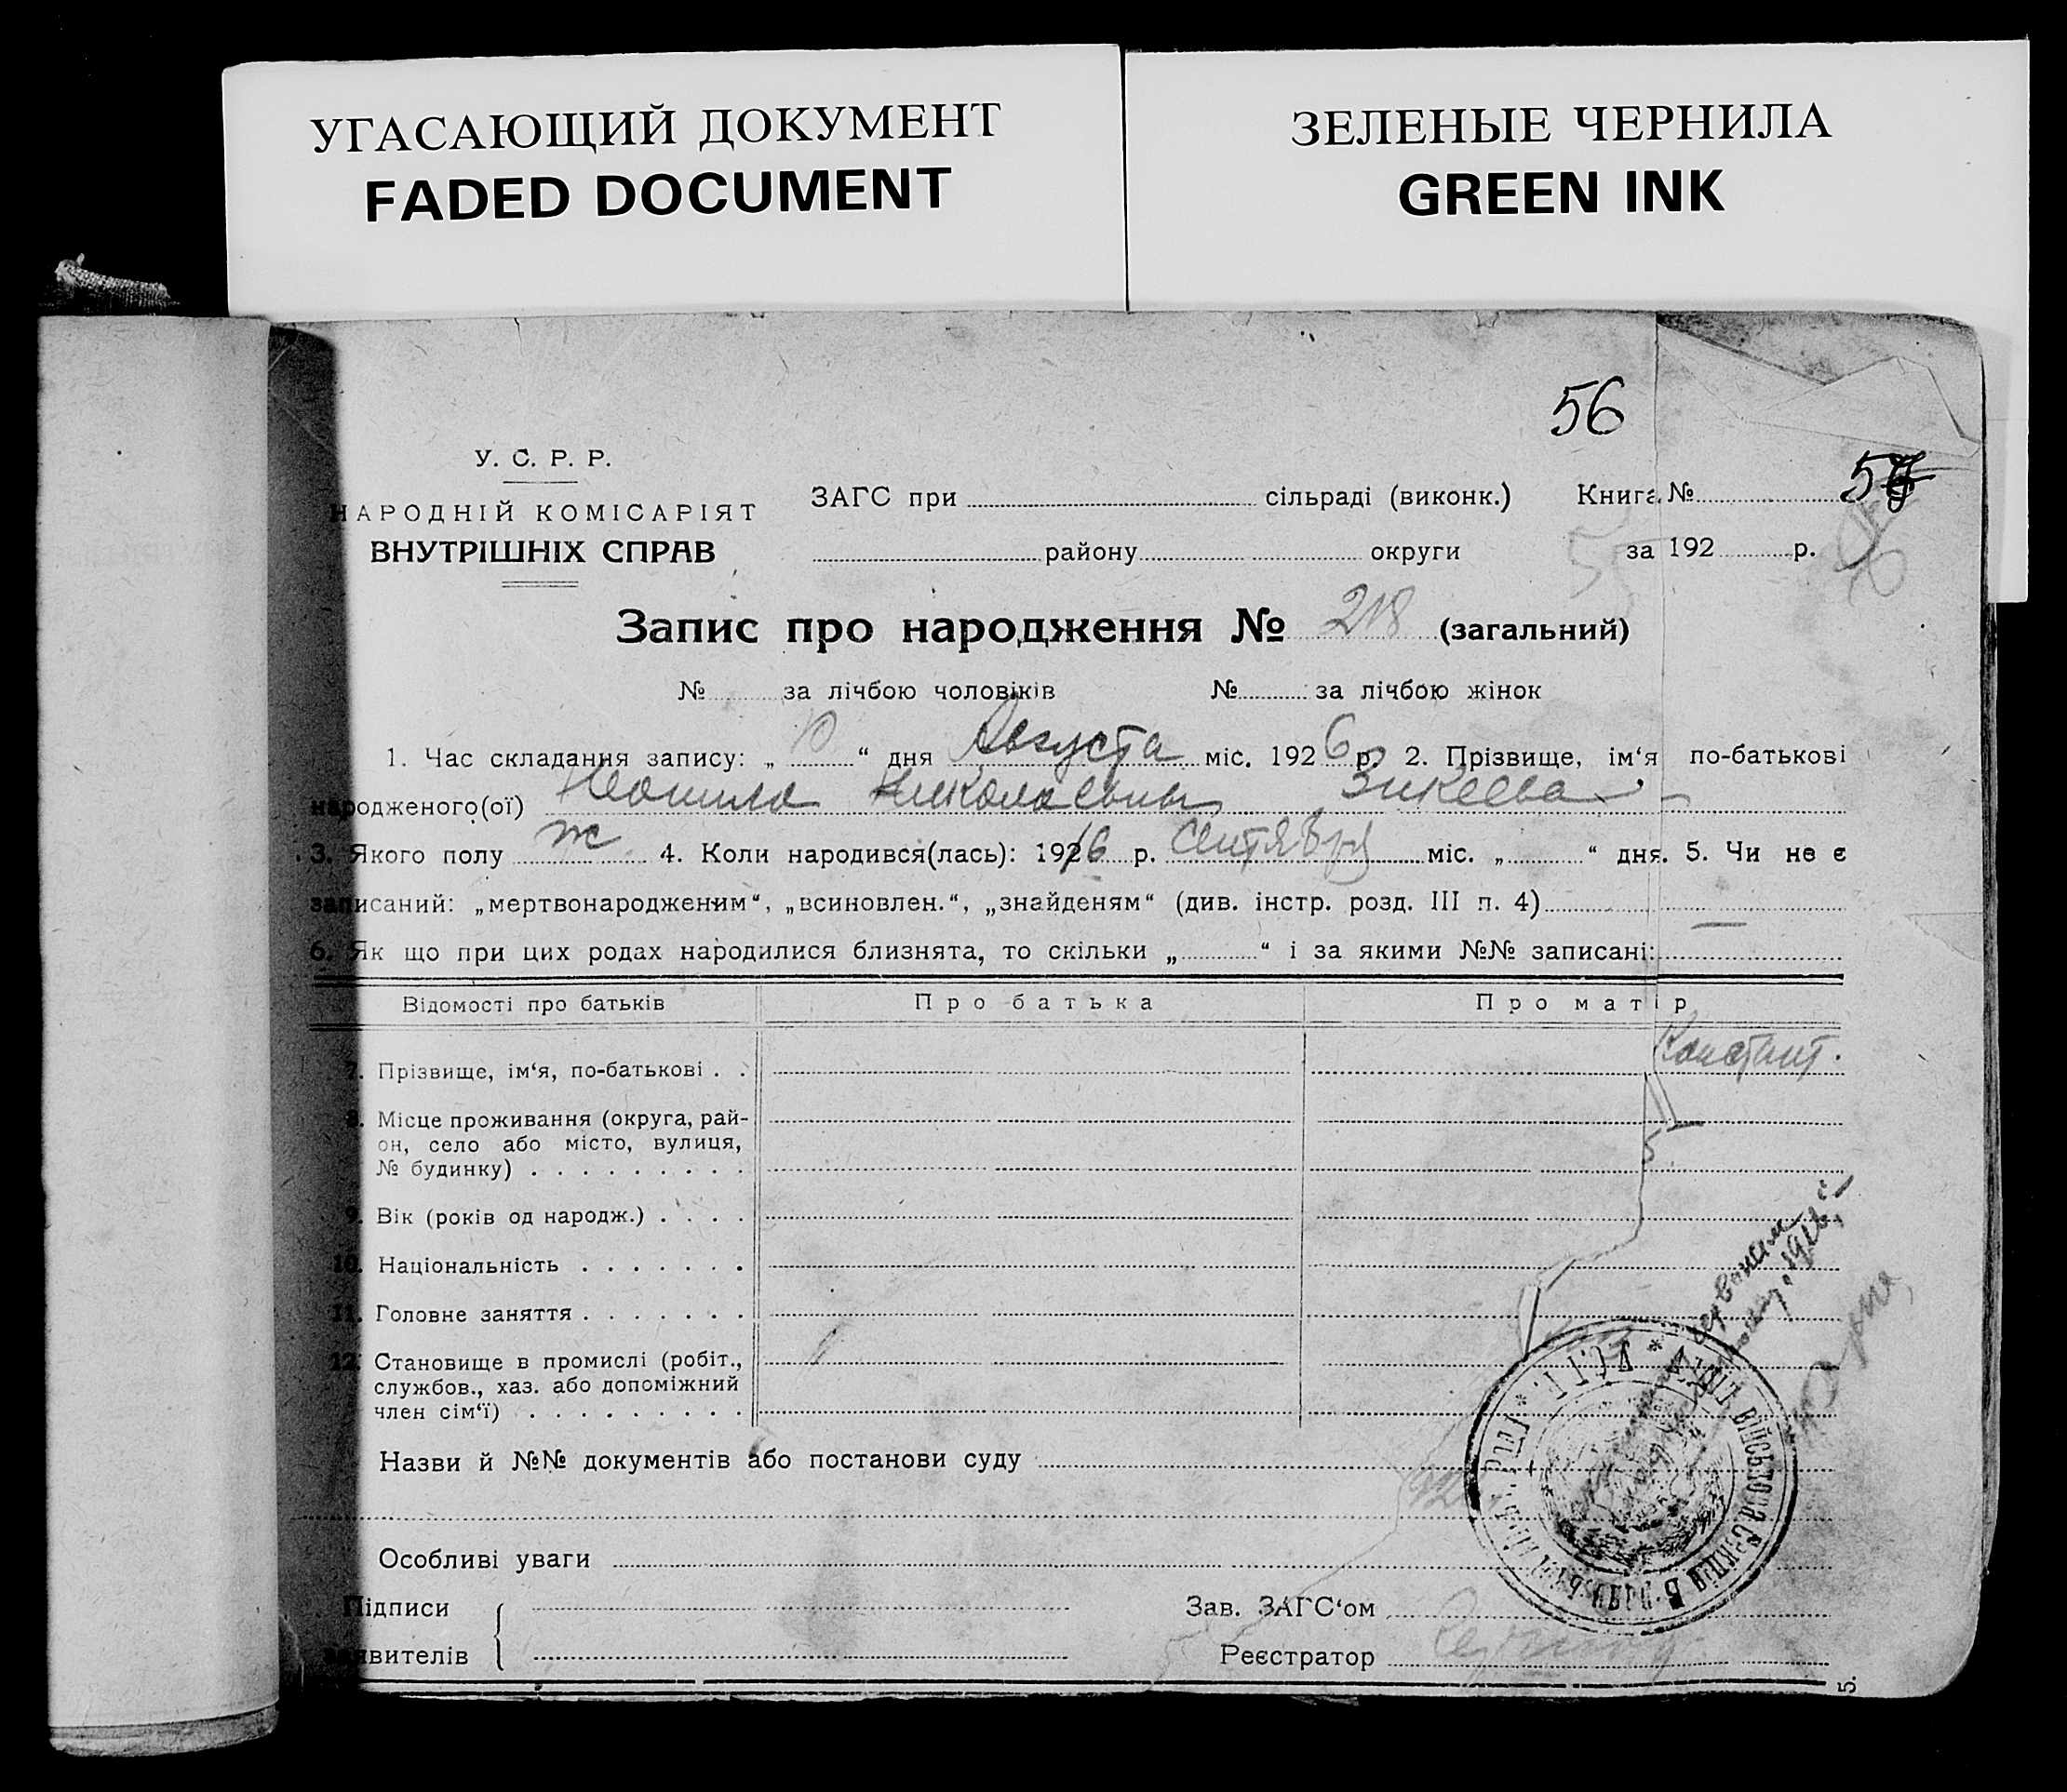 УГАСАЮЩИЙ ДОКУМЕНТ
FADED DOCUMENT
ЗЕЛЕНЫЕ ЧЕРНИЛА
GREEN INK
56
У. С. Р. Р.
НАРОДНІЙ КОМІСАРІЯТ
ВНУТРІШНІХ СПРАВ
ЗАГС при сільраді (виконк.) Книга №
району округи за 192 р.
Запис про народження № 218 (загальний)
№ за лічбою чоловіків № за лічбою жінок
1. Час складання запису: „ 10 “ дня Августа міс. 1926 р. 2. Прізвище, ім‘я по-батькові
народженого(ої) Неонила Николаевны Зикеева
3. Якого полу ж 4. Коли народився(лась): 1916 р. Сентября міс. „ “ дня. 5. Чи не є
записаний: „мертвонародженим“, „всиновлен.“, „знайденям“ (див. інстр. розд. III п. 4) —
6. Як що при цих родах народилися близнята, то скільки „ “ і за якими №№ записані:
Відомості про батьків Про батька Про матір
Констант.
7. Прізвище, ім‘я, по-батькові . .
8. Місце проживання (округа, рай-
он, село або місто, вулиця,
№ будинку) . . . . . . . . .
9. Вік (років од народж.) . . . .
10. Національність . . . . . . .
11. Головне заняття . . . . . . .
12. Становище в промислі (робіт.,
службов., хаз. або допоміжний
член сім‘ї) . . . . . . . . .
Назви й №№ документів або постанови суду
Особливі уваги
Підписи
заявителів
Зав. ЗАГС‘ом
Реєстратор
5.